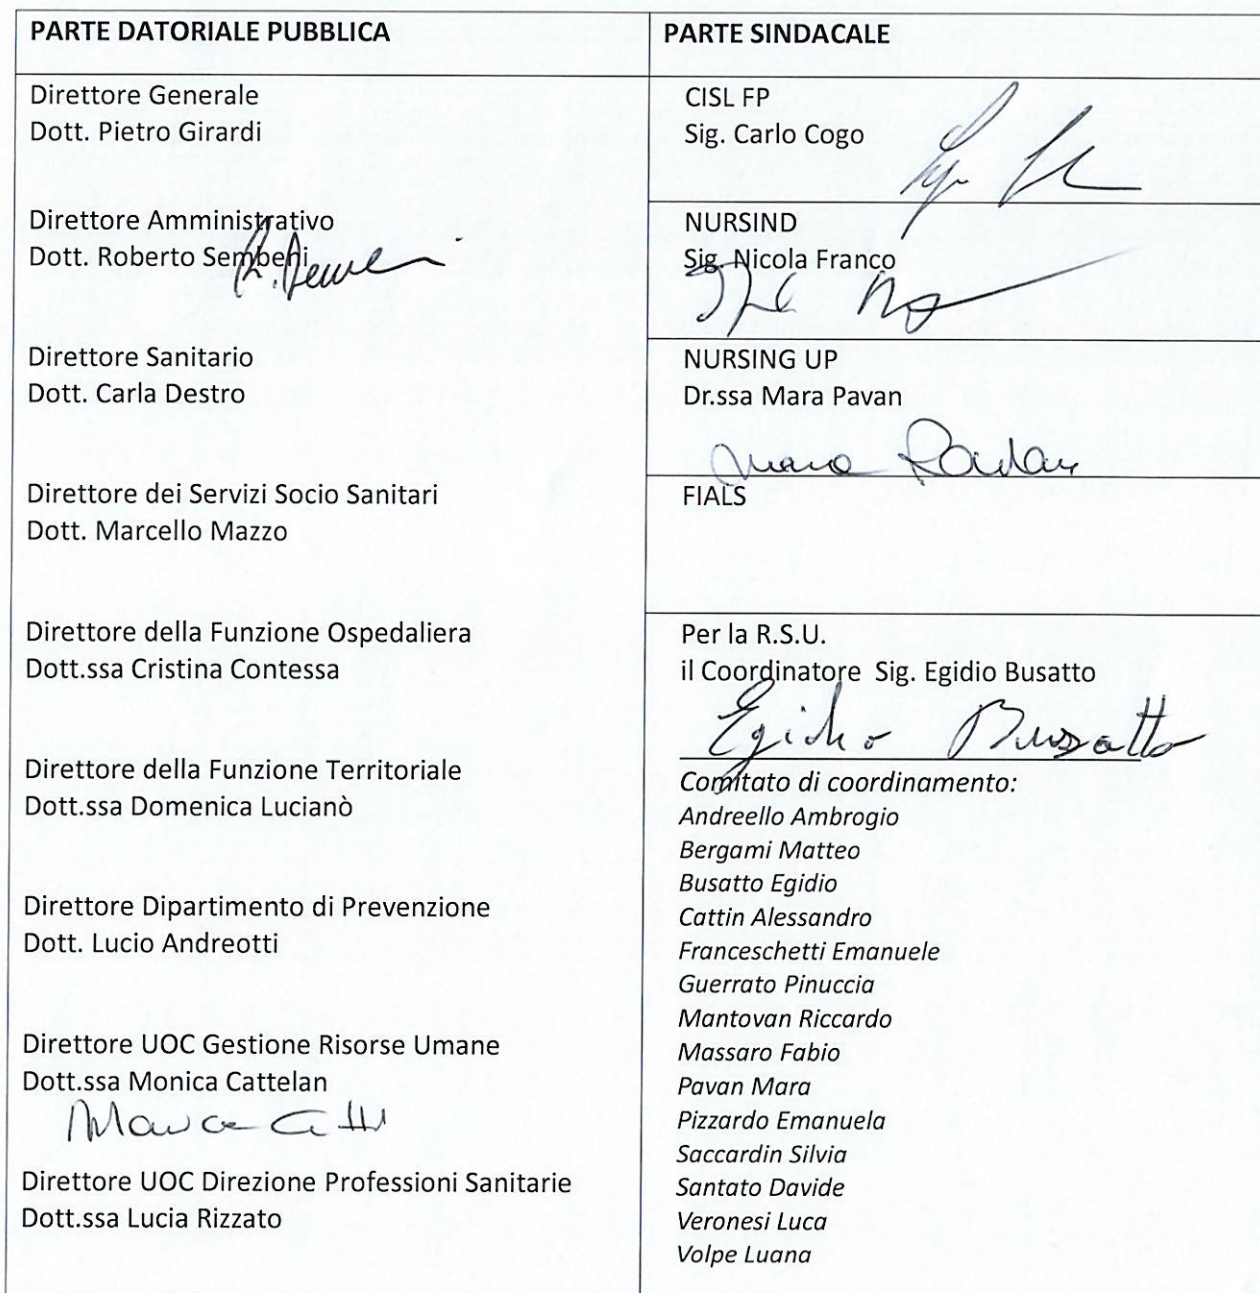 PARTE DATORIALE PUBBLICA
Direttore Generale
Dott. Pietro Girardi
Direttore Amministrativo
Dott. Roberto Sembeni
Direttore Sanitario
Dott. Carla Destro
Direttore dei Servizi Socio Sanitari
Dott. Marcello Mazzo
Direttore della Funzione Ospedaliera
Dott.ssa Cristina Contessa
Direttore della Funzione Territoriale
Dott.ssa Domenica Lucianò
Direttore Dipartimento di Prevenzione
Dott. Lucio Andreotti
Direttore UOC Gestione Risorse Umane
Dott.ssa Monica Cattelan
Direttore UOC Direzione Professioni Sanitarie
Dott.ssa Lucia Rizzato
PARTE SINDACALE
CISL FP
Sig. Carlo Cogo
NURSIND
Sig. Nicola Franco
NURSING UP
Dr.ssa Mara Pavan
Mara Pavan
FIALS
Per la R.S.U.
il Coordinatore Sig. Egidio Busatto
Egidio Busatto
Comitato di coordinamento:
Andreello Ambrogio
Bergami Matteo
Busatto Egidio
Cattin Alessandro
Franceschetti Emanuele
Guerrato Pinuccia
Mantovan Riccardo
Massaro Fabio
Pavan Mara
Pizzardo Emanuela
Saccardin Silvia
Santato Davide
Veronesi Luca
Volpe Luana